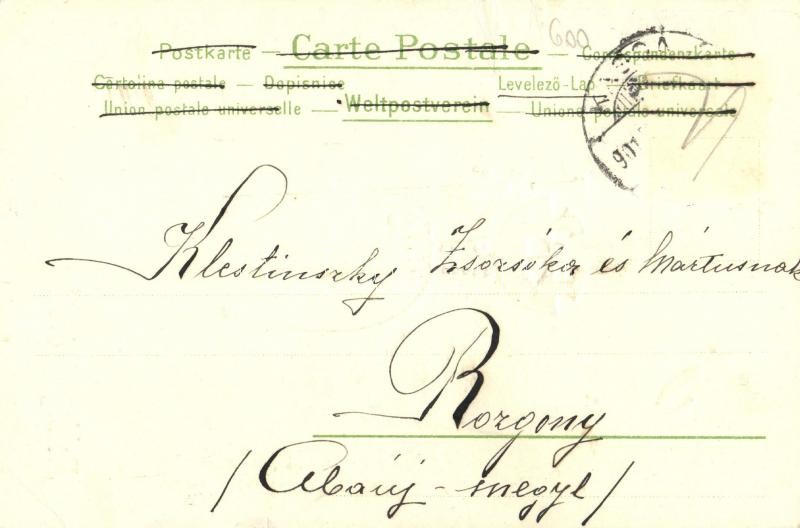 600
Postkarte — Carte Postale — Correspondenzkarte
Cartolina postale — Dopisnice Levelező-Lap — Briefkaart
Union postale universelle — Weltpostverein — Unione postale universale
Klestinszky Zsozsóka és Mártusnak
Rozgony
/Abaúj-megye/